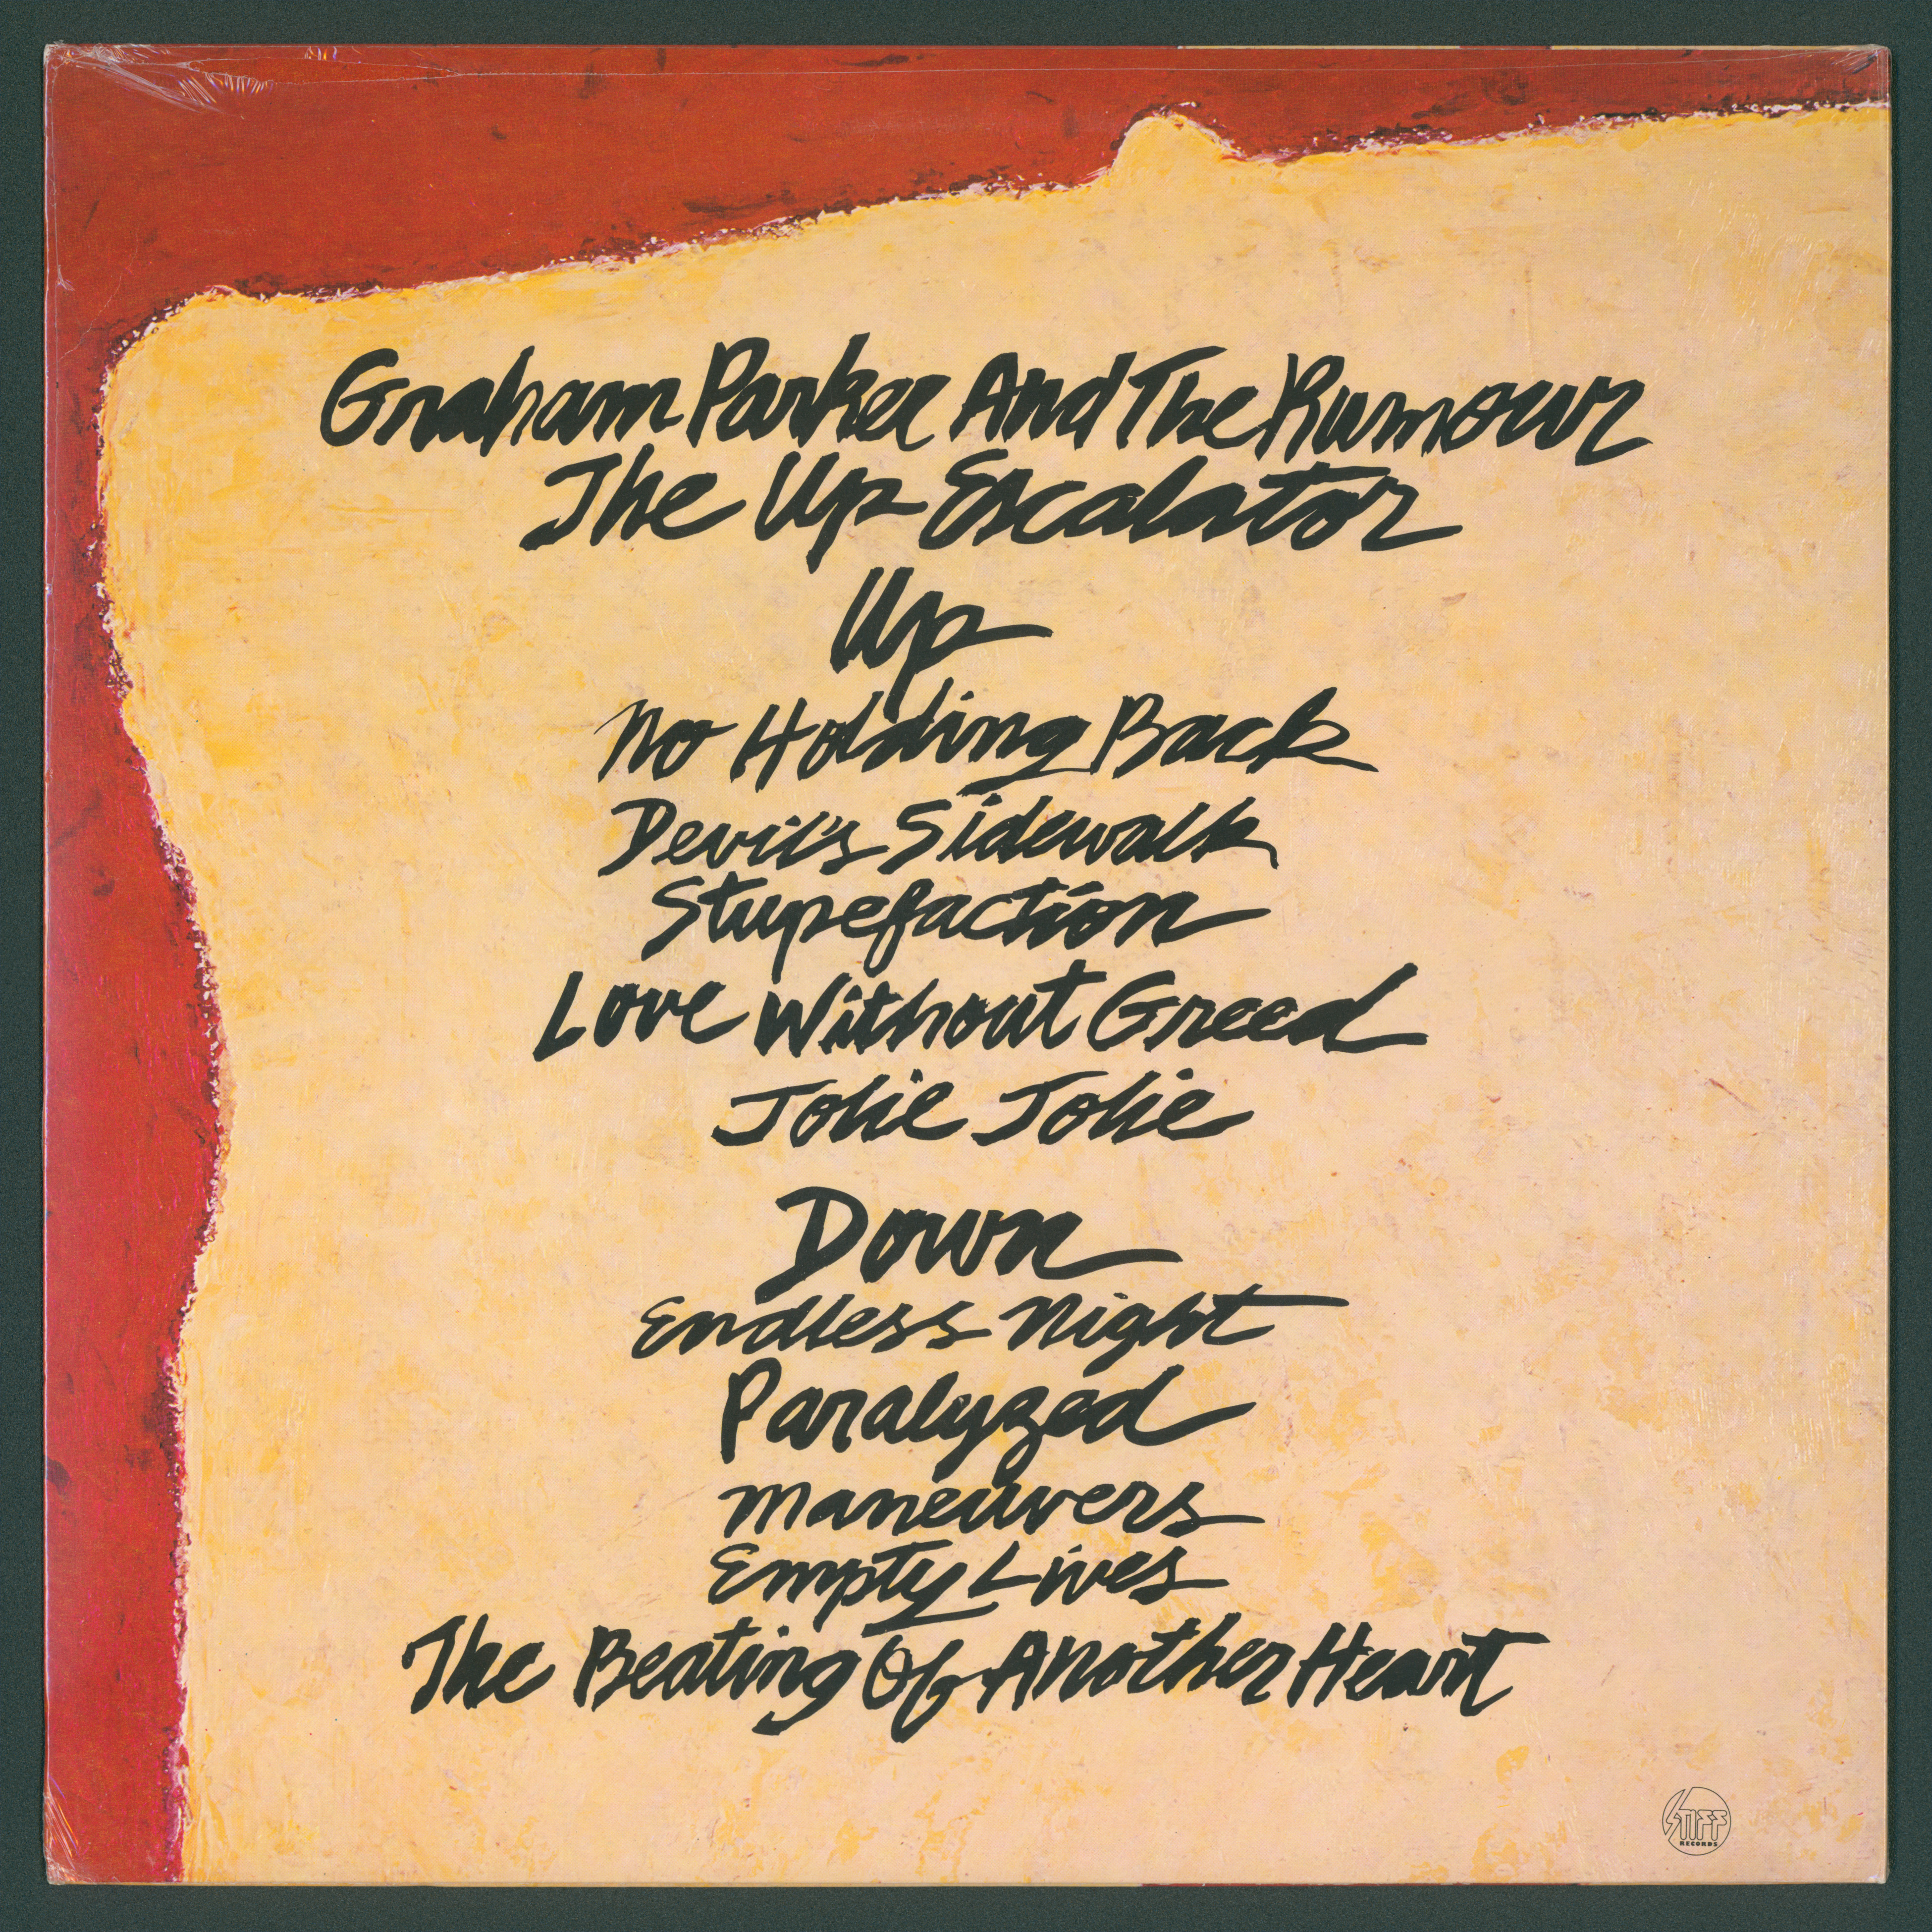 Graham Parker And The Rumour
The Up Escalator
Up
No Holding Back
Devil's Sidewalk
Stupefaction
Love Without Greed
Jolie Jolie
Down
Endless Night
Paralyzed
Maneuvers
Empty Lives
The Beating Of Another Heart
STIFF
RECORDS